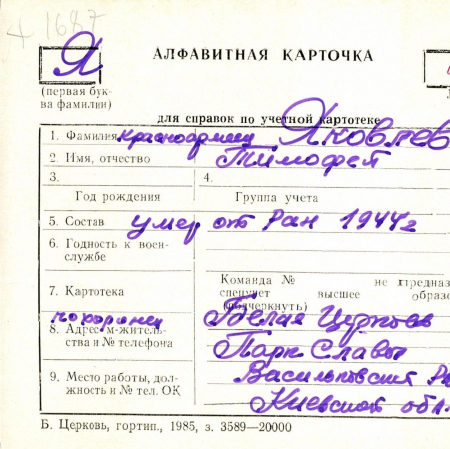 1687
Я
АЛФАВИТНАЯ КАРТОЧКА
(первая бук-
ва фамилии)
для справок по учетной картотеке
1. Фамилия красноармеец Яковлев
2. Имя, отчество Тимофей
3. 4.
Год рождения Группа учета
5. Состав умер от ран 1944г
6. Годность к воен-
службе
Команда № не предназ
7. Картотека спецучет высшее образо
(подчеркнуть)
похоронен Белая Церковь
8. Адрес м-житель-
ства и № телефона Парк Славы
9. Место работы, дол-
жность и № тел. ОК
Васильковский
Киевской обл.
Б. Церковь, гортип., 1985, з. 3589—20000